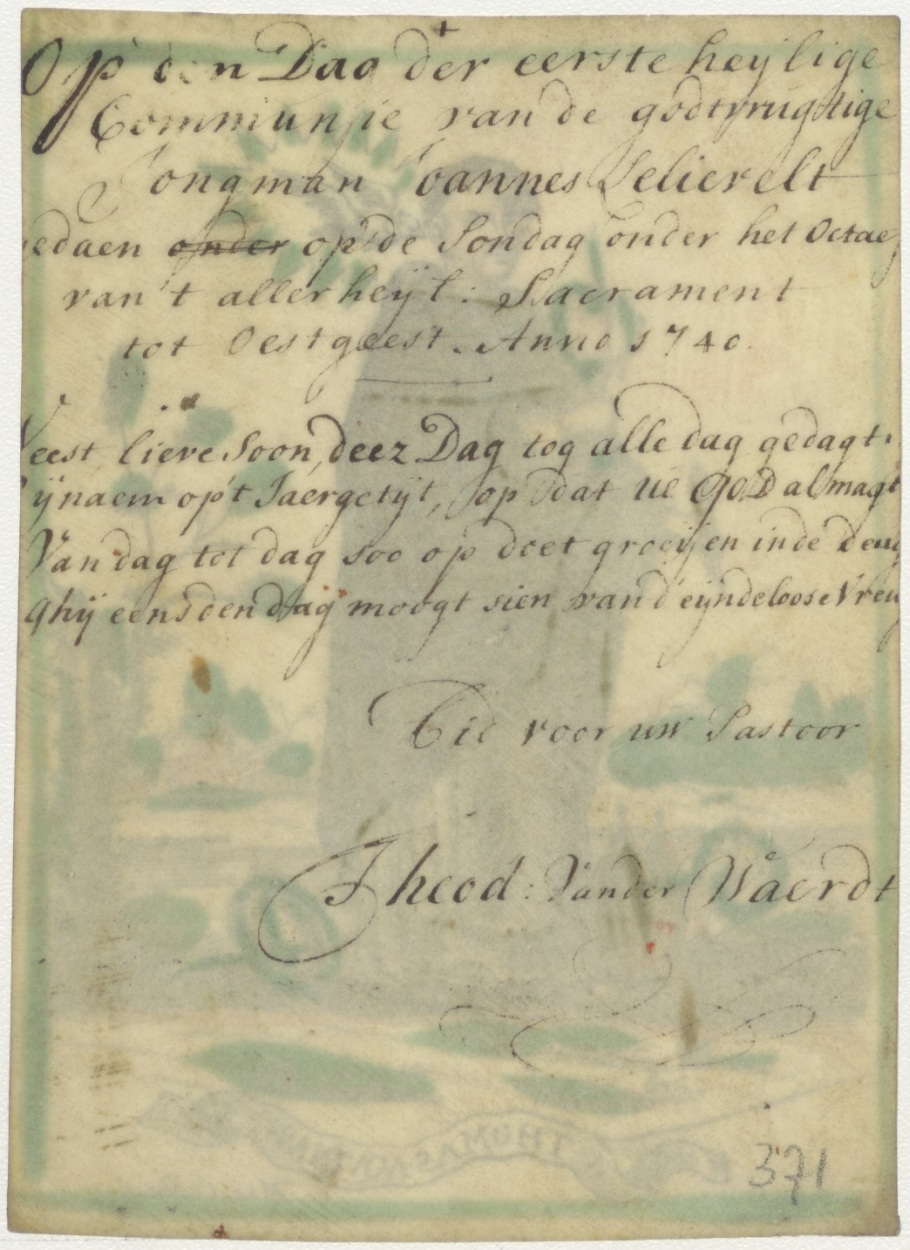 +
Op den Dag der eerste heylige
Communie van de godtvrugtige
Jongman Joannes Lelievelt
gedaen ~~onder~~ op de Sondag onder het Octaef
van 't allerheyl: Sacrament
tot Oestgeest. Anno 1740.
Weest lieve Soon, deez Dag tog alle dag gedagt.
op't Jaergetyt, op dat UE God almagt
Van dag tot dag soo op doet groeijen inde Deug
Ghij eens den dag moogt sien van d'eyndeloose Vreu
Bid voor uw Pastoor
Theod: Vander Waerdt
THOMAS
371